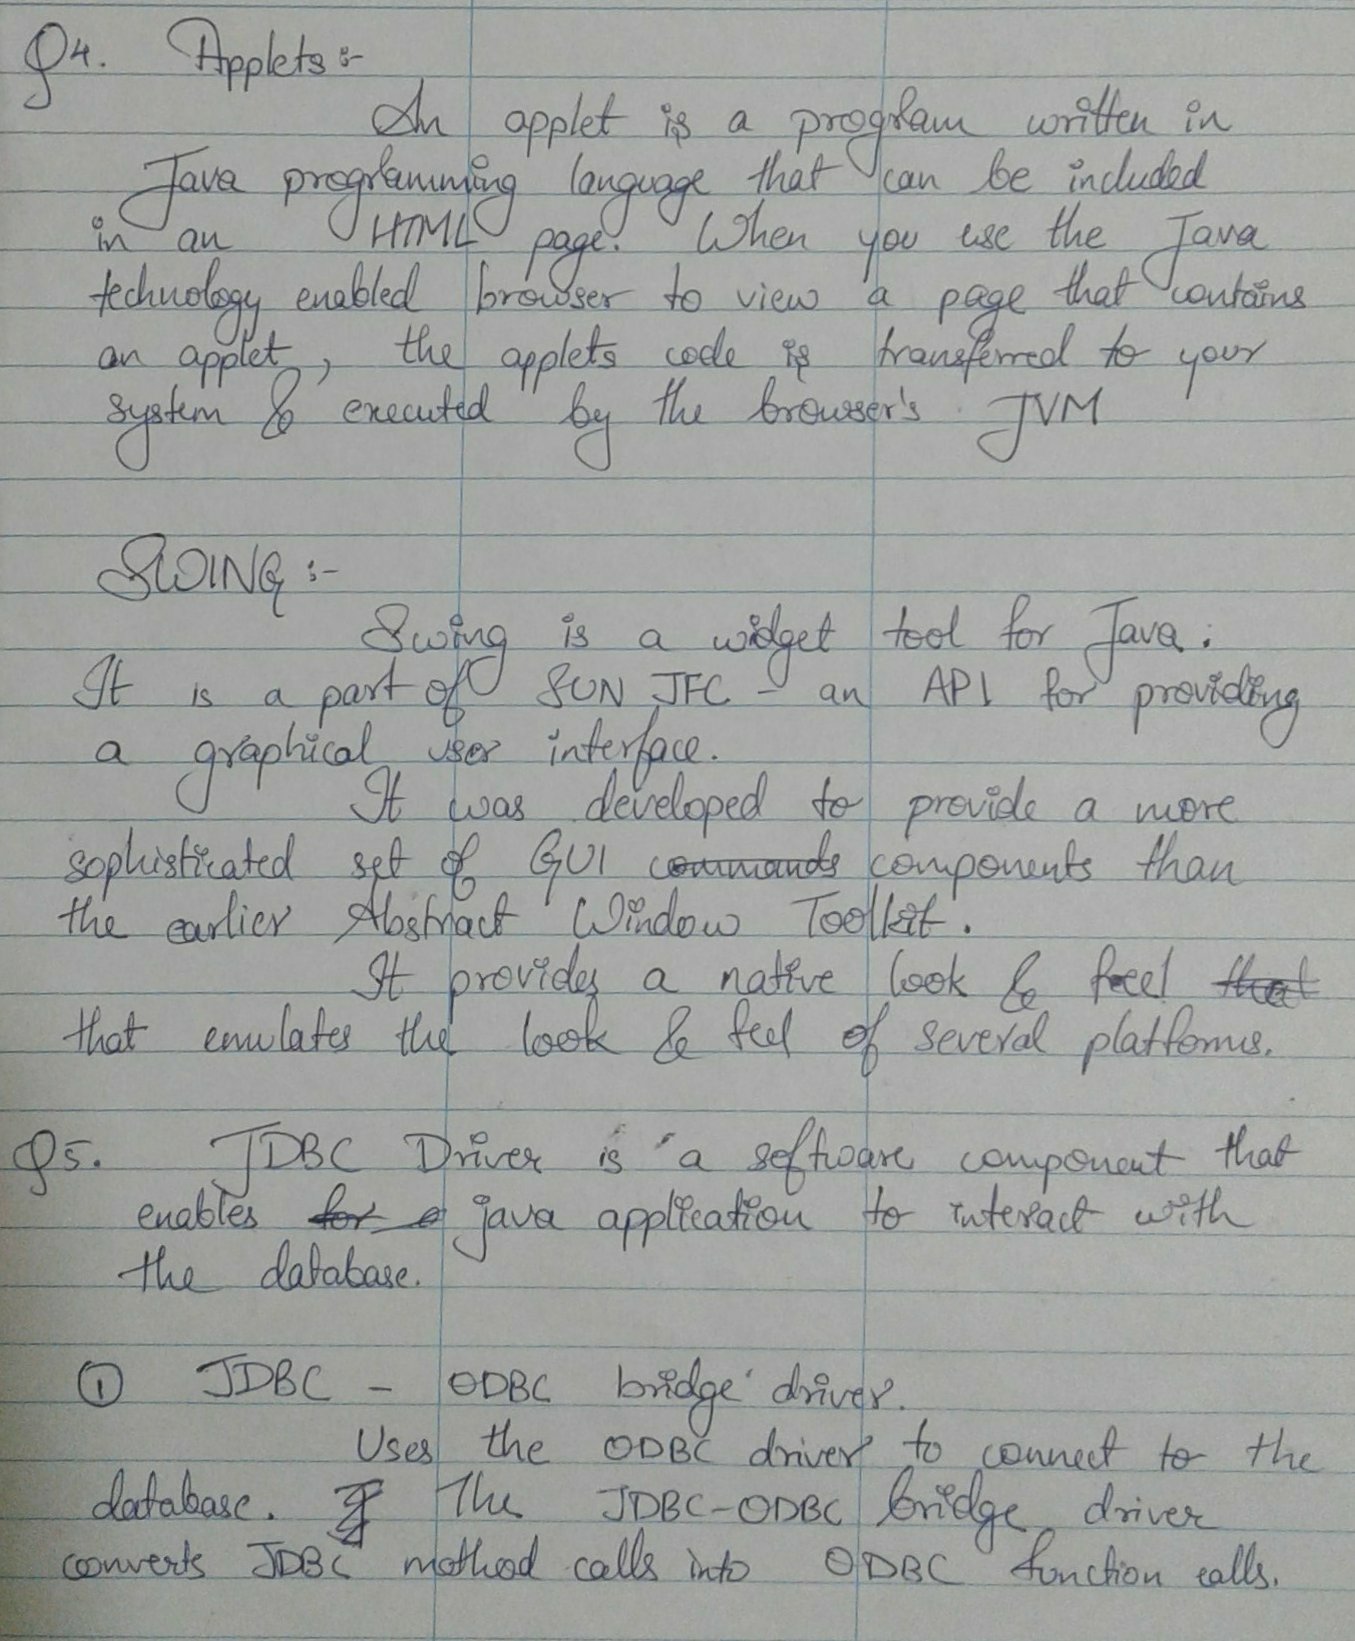 Q4. Applets :-
An applet is a program written in
Java programming language that can be included
in an HTML page. When you use the Java
technology enabled browser to view a page that contains
an applet, the applets code is transferred to your
system & executed by the browser's JVM
SWING :-
Swing is a widget tool for Java.
It is a part of SUN JFC - an API for providing
a graphical user interface.
It was developed to provide a more
sophisticated set of GUI commands components than
the earlier Abstract Window Toolkit.
It provides a native look & feel that
that emulates the look & feel of several platforms.
Q5. JDBC Driver is a software component that
enables for a java application to interact with
the database.
① JDBC - ODBC bridge driver.
Uses the ODBC driver to connect to the
database. The JDBC-ODBC bridge driver
converts JDBC method calls into ODBC function calls.